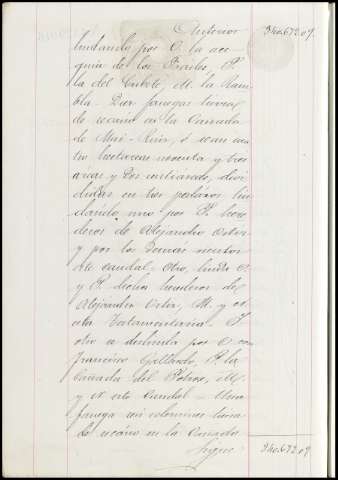 Anterior 340.672.09.
lindando por O. la ace-
quia de los Frailes, P.
la del Cubete, M. la Ram-
bla. Diez fanegas tierra
de secano en la Cañada
de Mai-Ruiz, ó sean cua-
tro hectareas noventa y tres
areas y dos centiareas, divi-
didas en tres pedazos lin-
dando uno por P. here-
deros de Alejandro Ortiz
y por los demás vientos
este caudal. Otro, linda O.
y P. dichos herederos de
Alejandro Ortiz, M. y
esta testamentaria. Y
otro a deslinda por O. con
Francisco Gallardo, P. la
Cañada del Potros, M.
y N. este Caudal. Una
fanega seis celemines tierra
de secano en la Cañada
Sigue 340.672.09